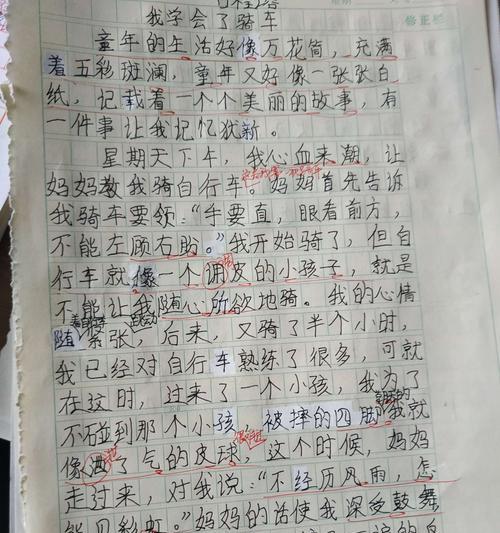 修正栏
我学会了骑车
童年的生活好像万花筒，充满
着五彩斑澜，童年又好像一张张白
纸，记载着一个个美丽的故事，有
一件事让我记忆犹新。
星期天下午，我心血来潮，让
妈妈教我骑自行车。妈妈首先告诉
我骑车要领：“手要直，眼看前方，
不能左顾右盼。”我开始骑了，但自
行车就像一个调皮的小孩子，就是
不能让我随心所欲地骑。我的心情
紧张，后来，又骑了半个小时，
我已经对自行车熟练了很多，可就
在这时，过来了一个小孩，我为了
不碰到那个小孩，被摔的四脚 我就
像 了气的皮球，这个时候，妈妈
走过来，对我说：“不经历风雨，怎
能见彩虹。”妈妈的话使我深受鼓舞